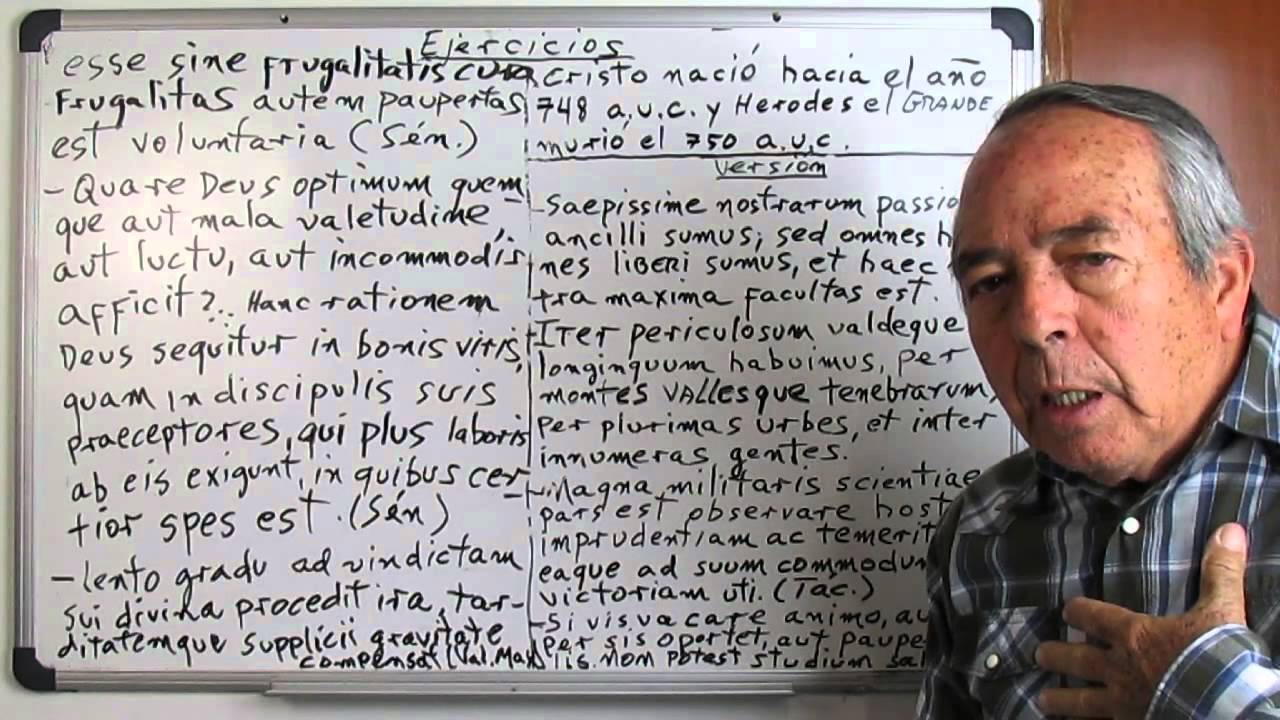 Ejercicios
esse sine frugalitatis cura
Frugalitas autem paupertas
est voluntaria (Sén.)
- Quare Deus optimum quem-
que aut mala valetudine,
aut luctu, aut incommodis
afficit?.. Hanc rationem
Deus sequitur in bonis viris,
quam in discipulis suis
praeceptores, qui plus laboris
ab eis exigunt, in quibus cer-
tior spes est. (Sén)
- lento gradu ad vindictam
sui divina procedit ira, tar-
ditatemque supplicii gravitate
compensat (Val. Max)
Cristo nació hacia el año
748 a.u.c. y Herodes el GRANDE
murió el 750 a.u.c.
Versión
- Saepissime nostrarum passio
ancilli sumus; sed omnes h
nes liberi sumus, et haec
tra maxima facultas est.
- Iter periculosum valdeque
longinquum habuimus, per
montes vallesque tenebrarum,
per plurimas urbes, et inter
innumeras gentes.
- Magna militaris scientiae
pars est observare host
imprudentiam ac temerit
eaque ad suum commodum
victoriam uti. (Tác.)
- Si vis vacare animo, au
per sis oportet, aut paupe
lis. Non potest studium sal